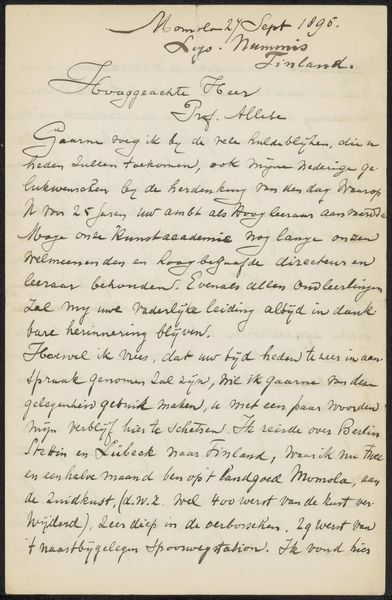 Momola 27 Sept 1895.
Lojo. Nummis
Finland.
Hooggeachte Heer
Prof. Allebé
Gaarne voeg ik bij de vele huldeblijken, die u
heden zullen toekomen, ook mijne nederige ge-
lukwenschen bij de herdenking van den dag waarop
U voor 25 jaren uw ambt als Hoogleeraar aanvaardde
Moge onze Kunstacademie nog lange onzen
welmeenenden en hoog begaafde directeur en
leeraar behouden. Evenals allen oud leerlingen
zal my uwe vaderlijke leiding altijd in dank-
bare herinnering blijven.
Hoewel ik vrees, dat uw tijd heden zeer in aan-
spraak genomen zal zijn, wil ik gaarne van deze
gelegenheid gebruik maken, u met een paar woorden
mijn verblijf hier te schetsen. Ik reisde over Berlin
Stettin en Lübeck naar Finland, waar ik nu twee
en een halve maand ben op 't landgoed Momola, aan
de zuidkust, (d.w.z. wel 400 werst van de kust ver-
wijderd), zeer diep in de oerbosschen. 29 werst van
't naastbijgelegen spoorwegstation. Ik vond hier